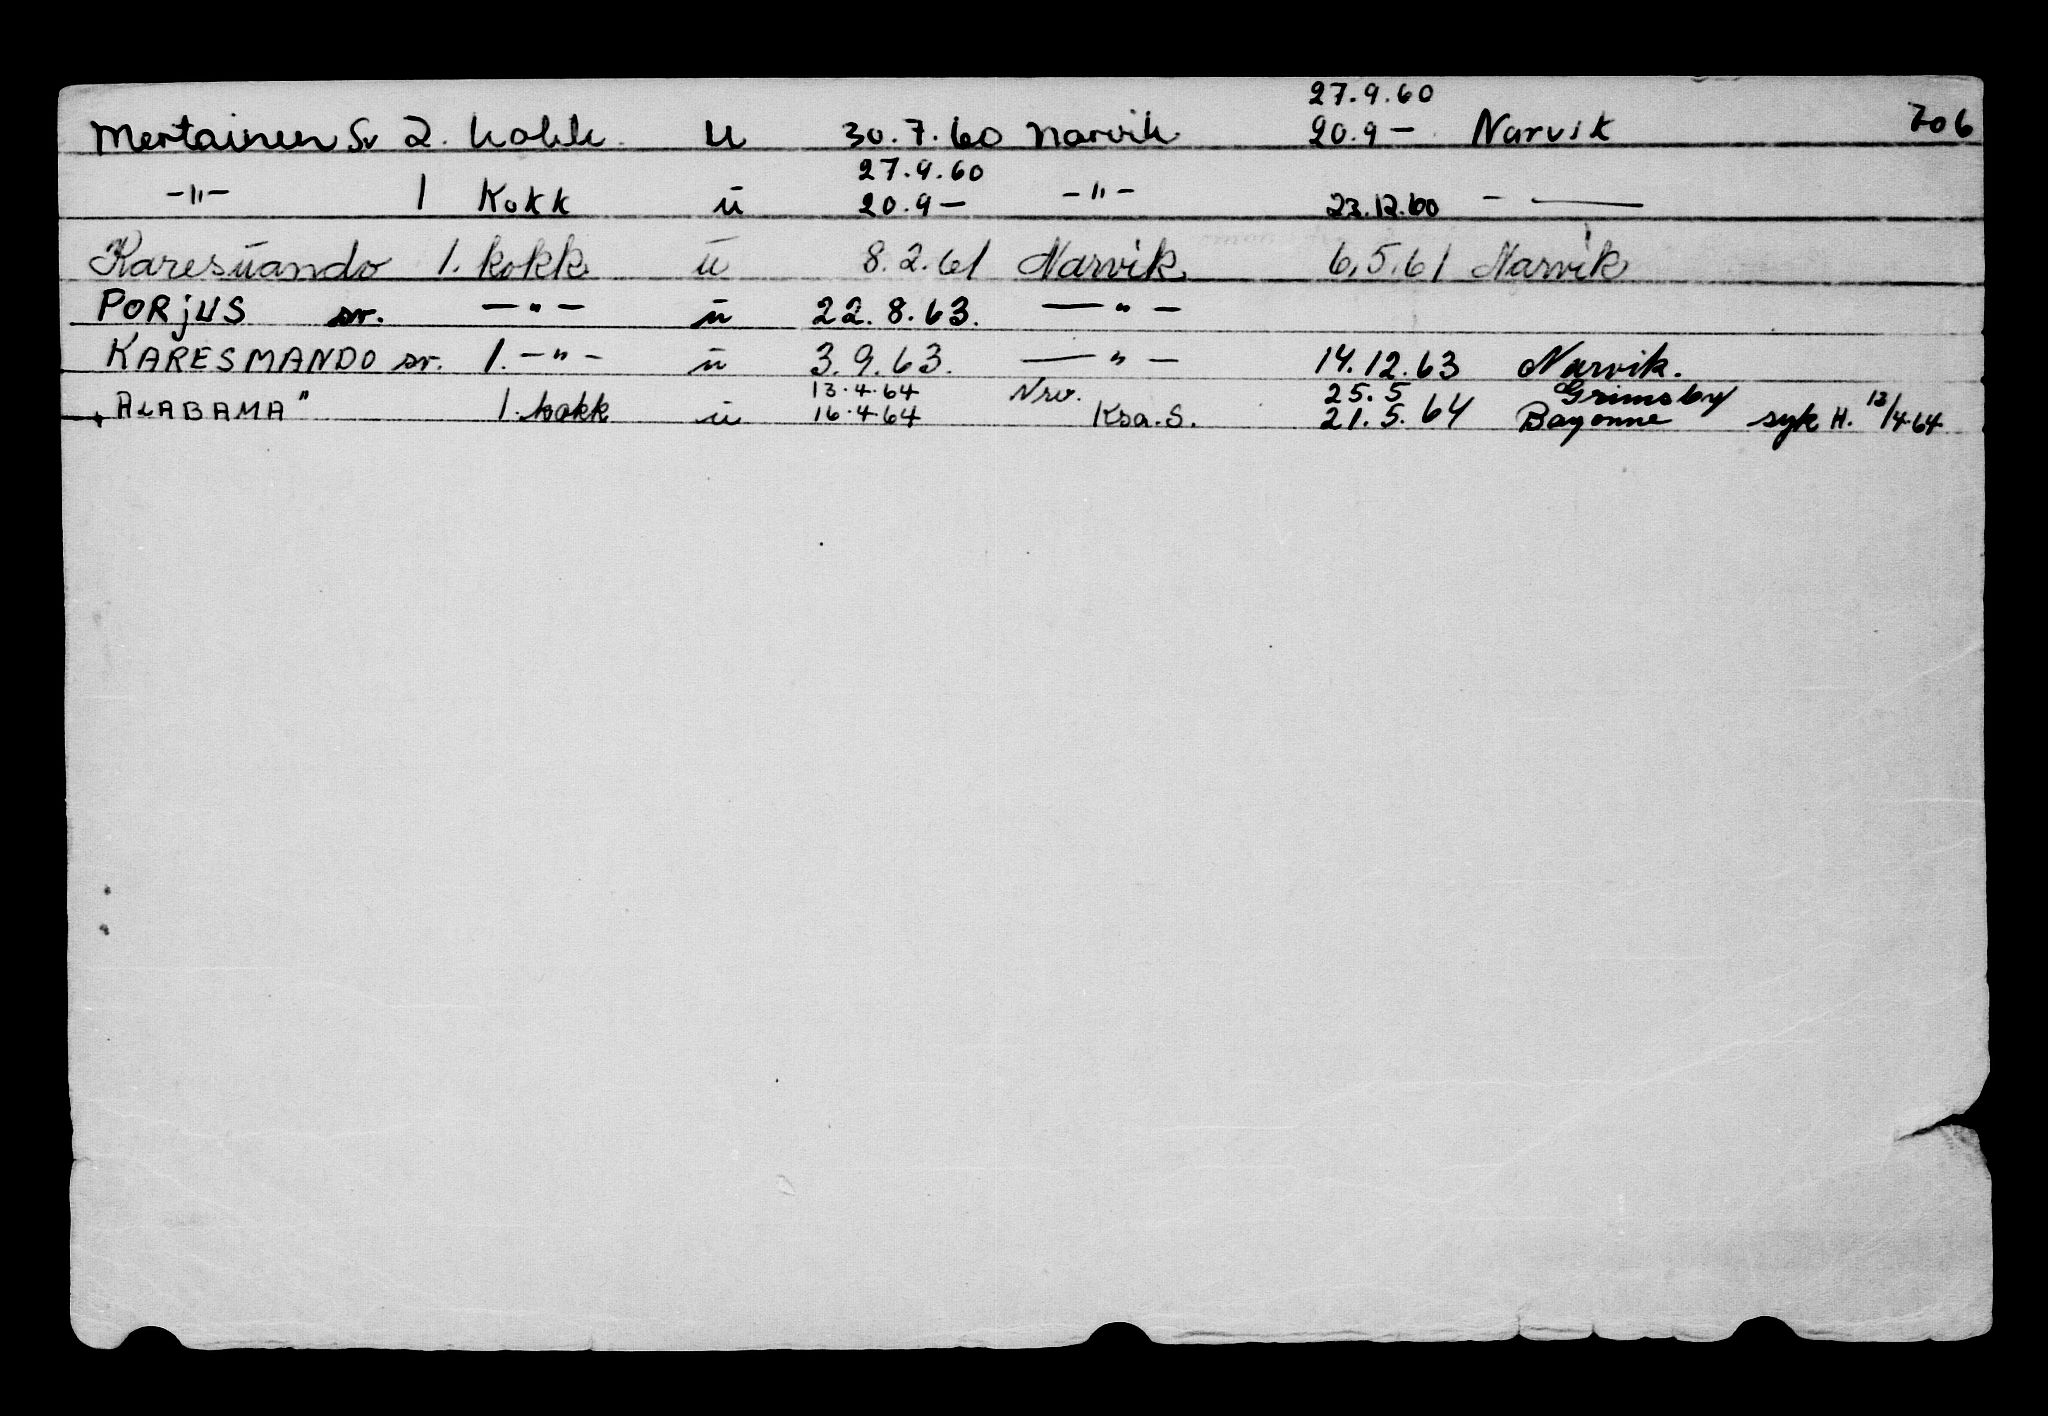 27.9.60
Mertainen Sv 2. kokk u 30.7.60 Narvik 20.9 — Narvik 706
27.9.60
—"— 1 Kokk u 20.9 — —"— 23.12.60 — —
Karesuando 1. kokk u 8.2.61 Narvik 6.5.61 Narvik
PORjUS sv. —"— u 22.8.63. —"—
KARESMANDO sv. 1. —"— u 3.9.63. —"— 14.12.63 Narvik.
13.4.64 Nrv. 25.5 Grimsby
"ALABAMA" 1. kokk u 16.4.64 Ksa.S. 21.5.64 Bayonne syk H. 13/4-64